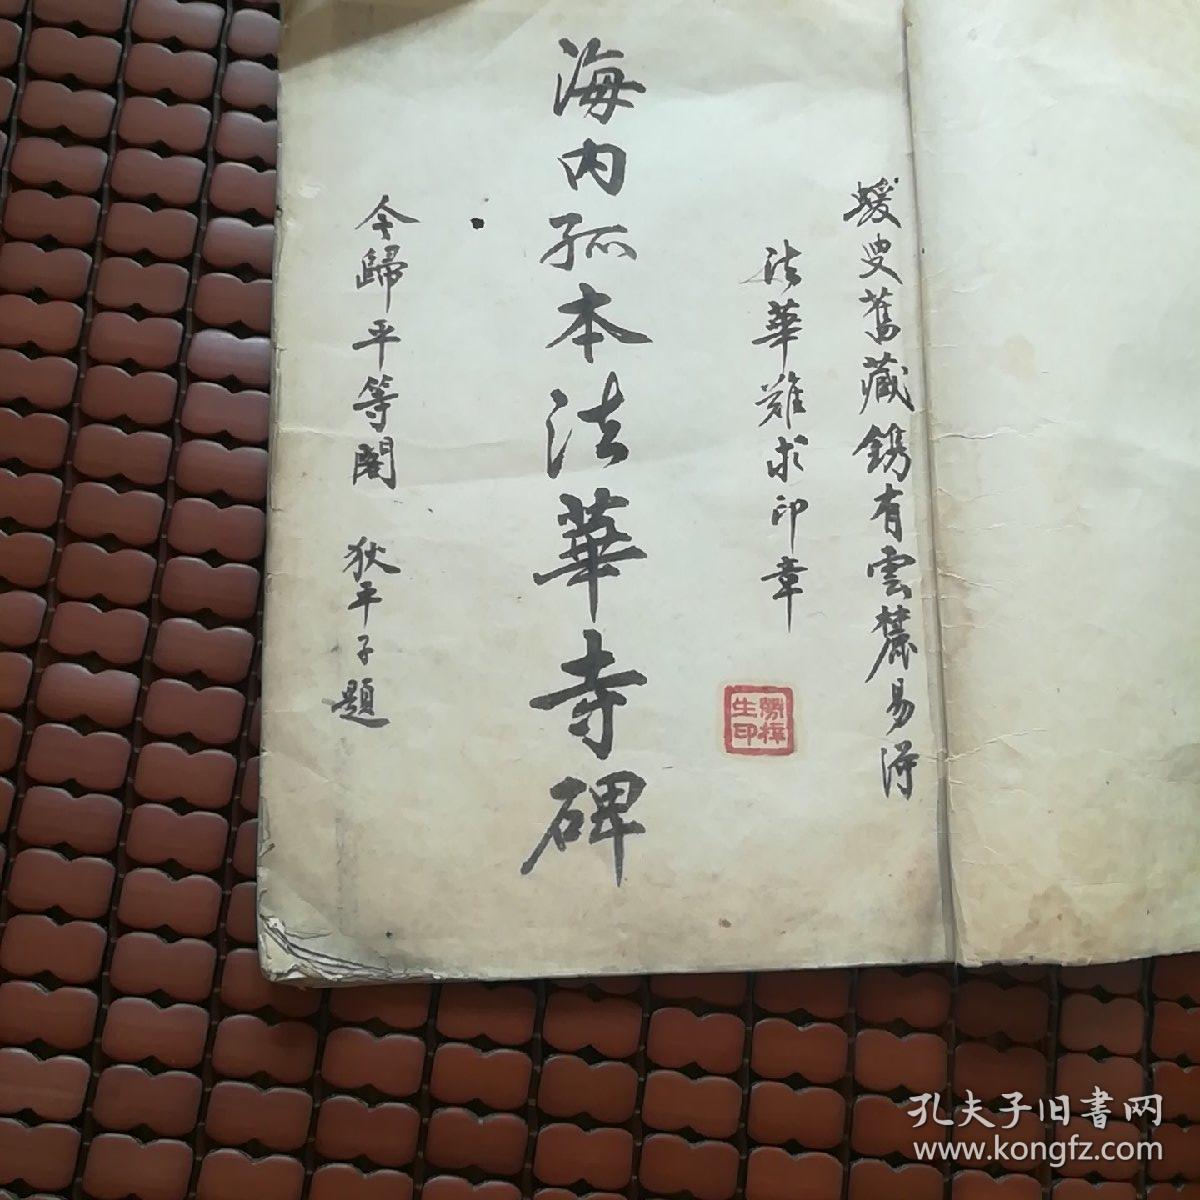 蝯叟舊藏鐫有雲麓易得
法華難求印章
海内孤本法華寺碑
今歸平等閣 狄平子題
生印
孔夫子旧書网
www.kongfz.com